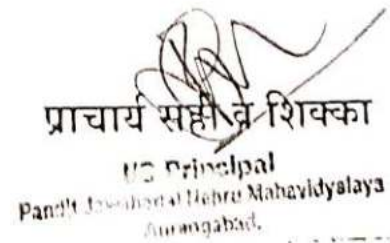 प्राचार्य सही व शिक्का
Principal
Pandit Jawaharlal Nehru Mahavidyalaya
Aurangabad.